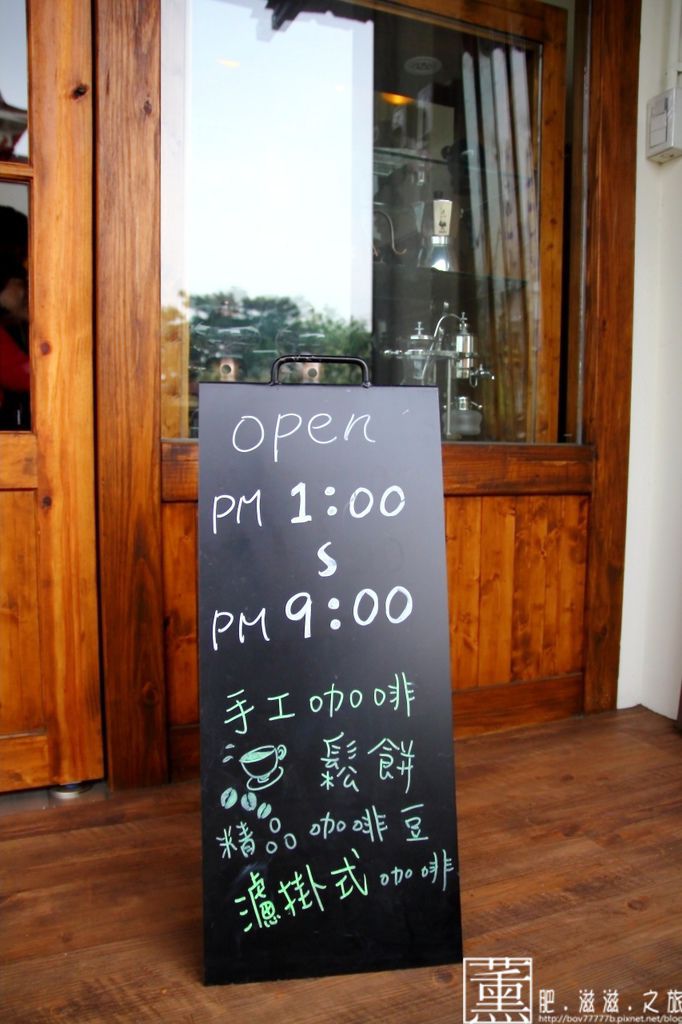 open
PM 1:00
S
PM 9:00
手工咖啡
鬆餅
精品咖啡豆
濾掛式咖啡
薰 肥.滋滋.之旅
http://bov77777b.pixnet.net/blog